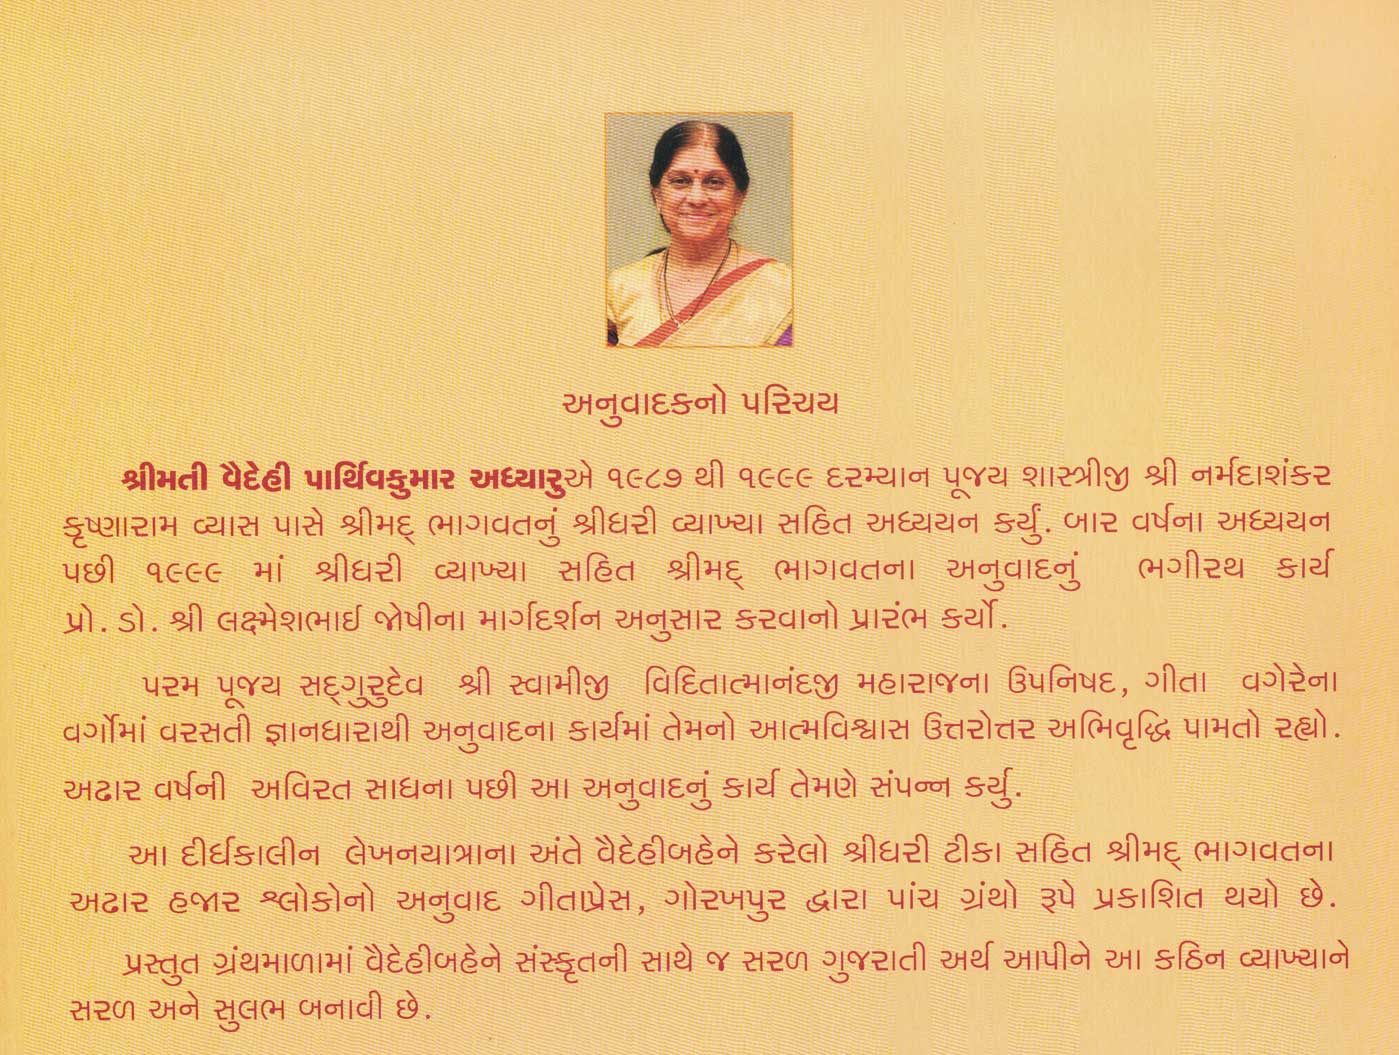 અનુવાદકનો પરિચય
શ્રીમતી વૈદેહી પાર્થિવકુમાર અધ્યારુએ ૧૯૮૭ થી ૧૯૯૯ દરમ્યાન પૂજય શાસ્ત્રીજી શ્રી નર્મદાશંકર
કૃષ્ણારામ વ્યાસ પાસે શ્રીમદ્ ભાગવતનું શ્રીધરી વ્યાખ્યા સહિત અધ્યયન કર્યું. બાર વર્ષના અધ્યયન
પછી ૧૯૯૯ માં શ્રીધરી વ્યાખ્યા સહિત શ્રીમદ્ ભાગવતના અનુવાદનું ભગીરથ કાર્ય
પ્રો. ડો. શ્રી લક્ષ્મેશભાઈ જોષીના માર્ગદર્શન અનુસાર કરવાનો પ્રારંભ કર્યો.
પરમ પૂજય સદ્ગુરુદેવ શ્રી સ્વામીજી વિદિતાત્માનંદજી મહારાજના ઉપનિષદ, ગીતા વગેરેના
વર્ગોમાં વરસતી જ્ઞાનધારાથી અનુવાદના કાર્યમાં તેમનો આત્મવિશ્વાસ ઉત્તરોત્તર અભિવૃદ્ધિ પામતો રહ્યો.
અઢાર વર્ષની અવિરત સાધના પછી આ અનુવાદનું કાર્ય તેમણે સંપન્ન કર્યુ.
આ દીર્ઘકાલીન લેખનયાત્રાના અંતે વૈદેહીબહેને કરેલો શ્રીધરી ટીકા સહિત શ્રીમદ્ ભાગવતના
અઢાર હજાર શ્લોકોનો અનુવાદ ગીતાપ્રેસ, ગોરખપુર દ્વારા પાંચ ગ્રંથો રૂપે પ્રકાશિત થયો છે.
પ્રસ્તુત ગ્રંથમાળામાં વૈદેહીબહેને સંસ્કૃતની સાથે જ સરળ ગુજરાતી અર્થ આપીને આ કઠિન વ્યાખ્યાને
સરળ અને સુલભ બનાવી છે.